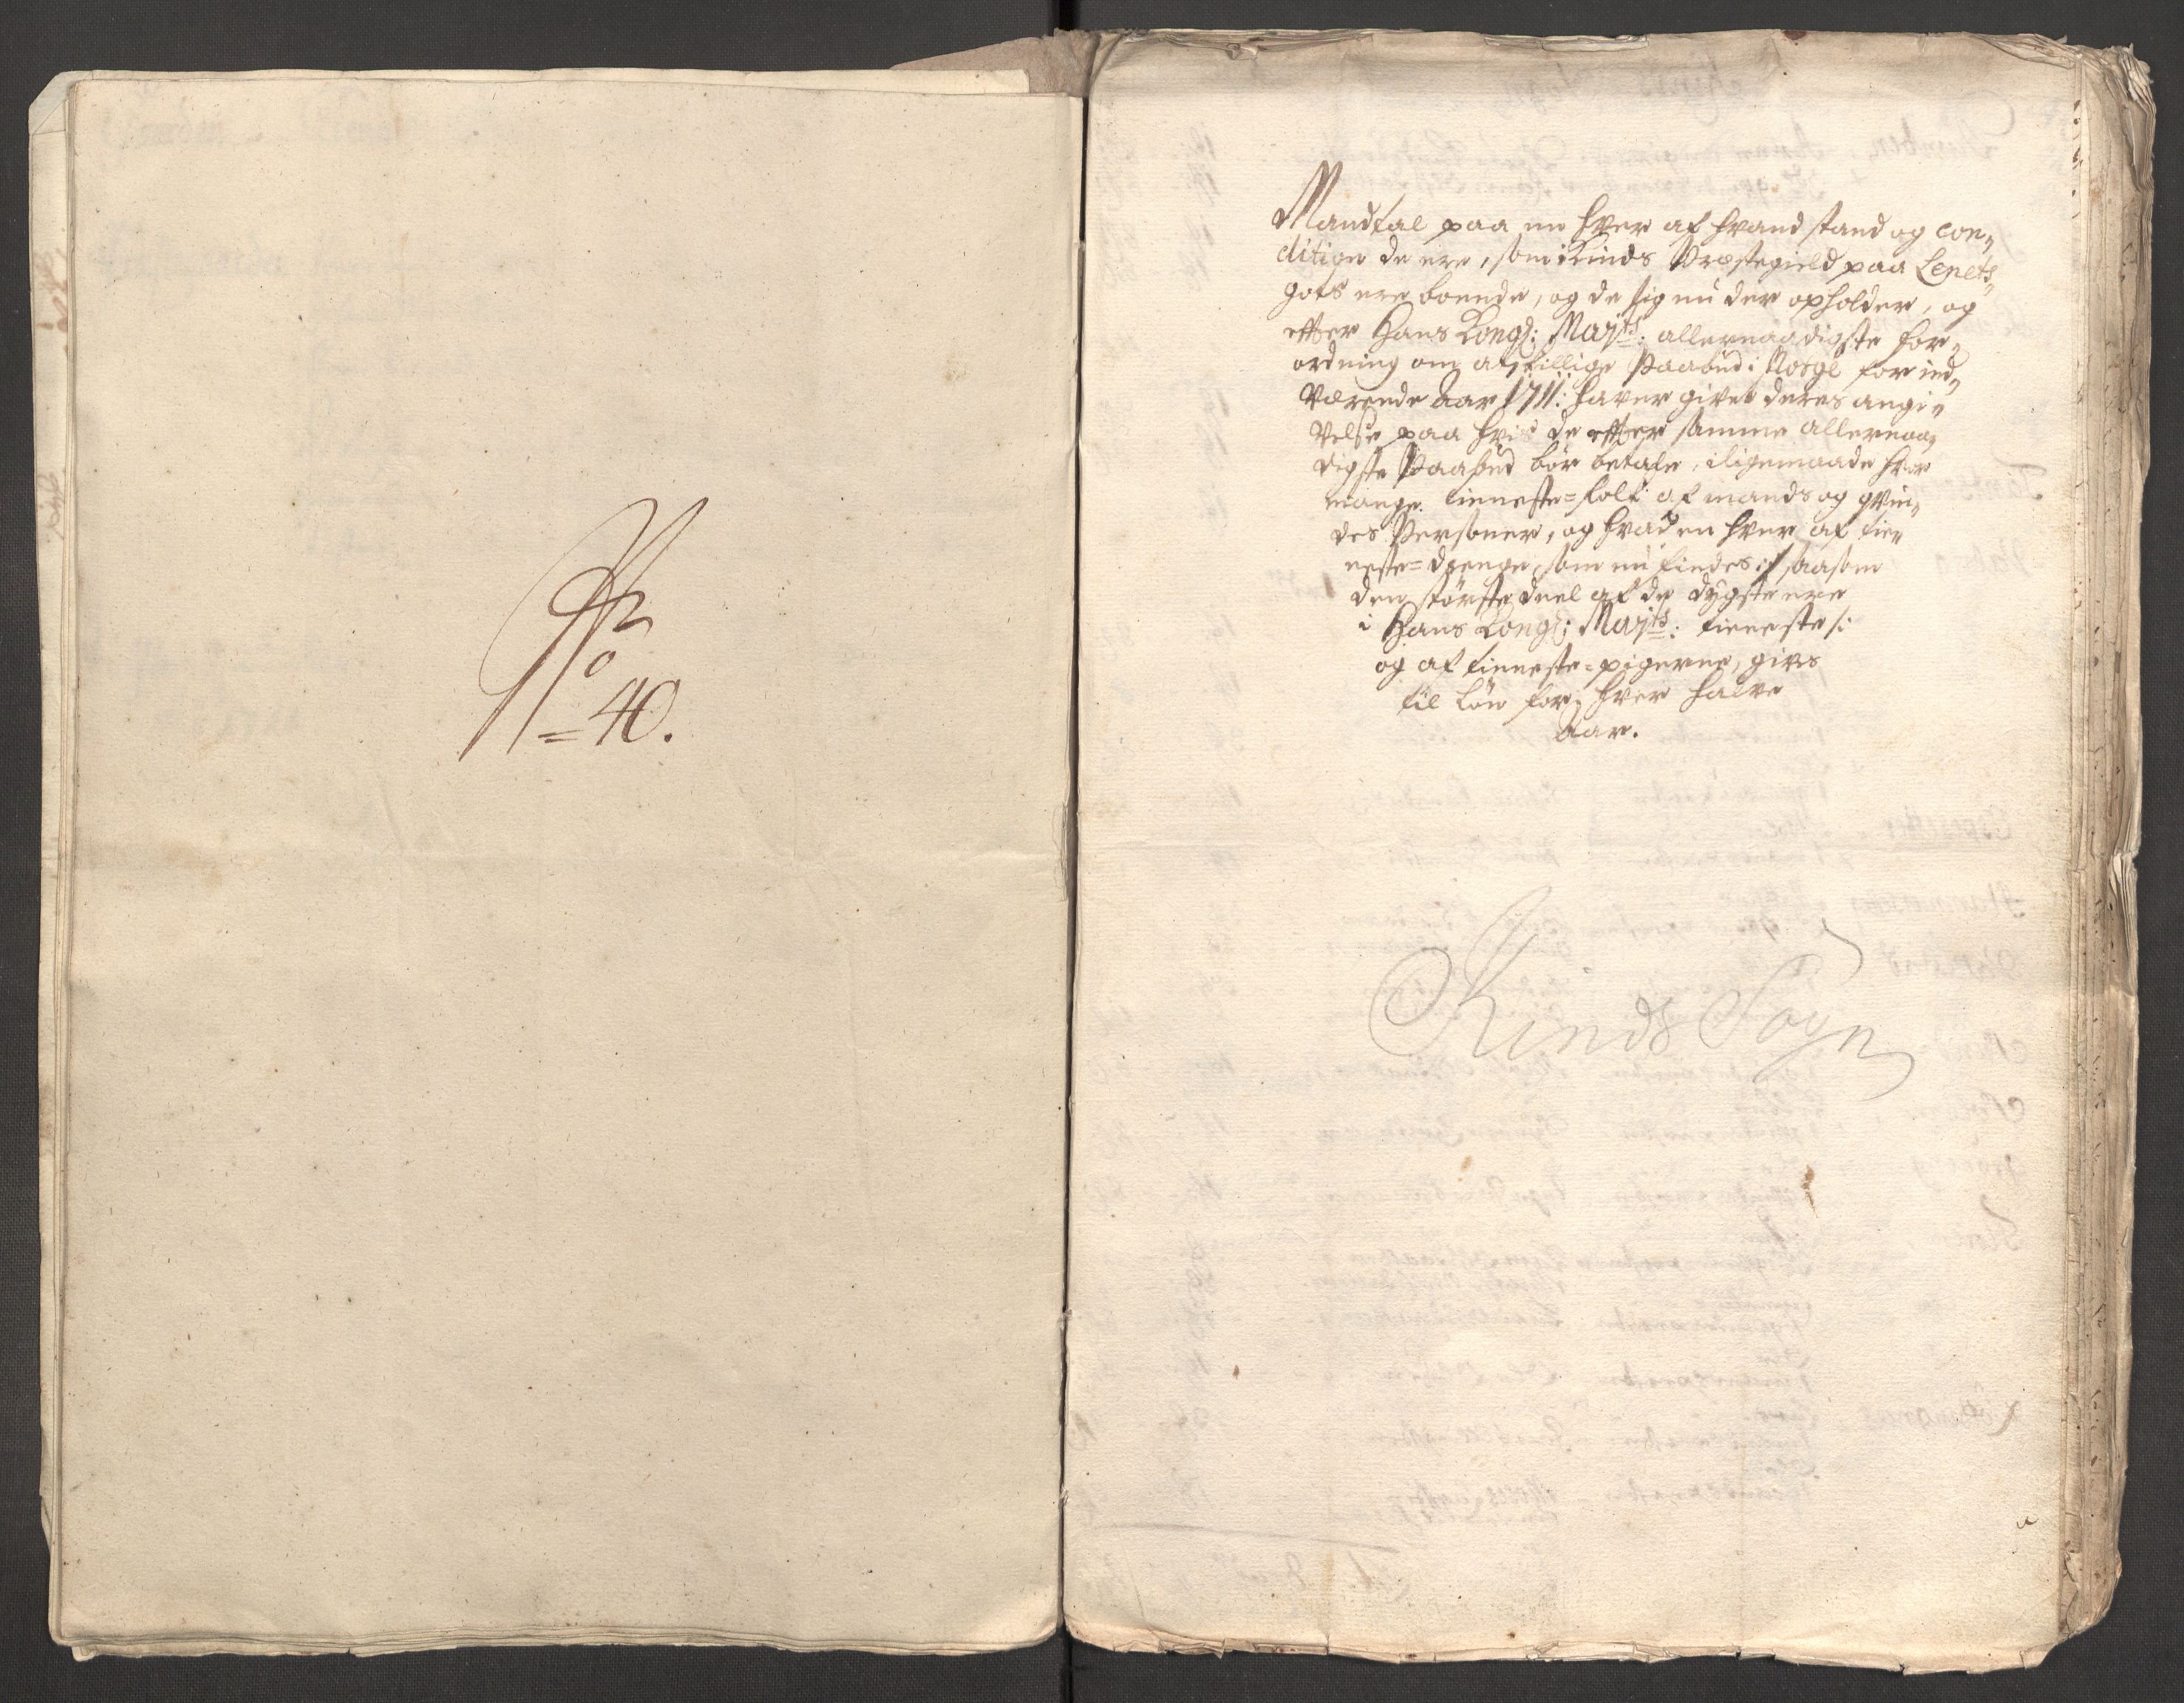 No
= 40.
Mandtal paa en hver af hvand stand og con„
dition de ere, som i Kinds Præstegield paa Lenets„
gots ere boende, og de sig nu der opholder, og
efter Hans Kongl: Mayts: allernaadigste for„
ordning om atskillige Paabud i Norge for ind„
værende Aar 1711: haver givet deres angi„
velse paa hvis de efter samme allernaa„
digste Paabud bør betale, iligemaade hvor
mange tieneste=folk af mands og qvin„
des Persohner, og hvad en hver af tie„
neste=drenge, som nu findes :/ saasom
den største deel af de dygste ere
i Hans Kongl: Mayts: tieneste /:
og af tieneste=pigerne, gives
til løn for hver halve
Aar.
Kinds Sogn